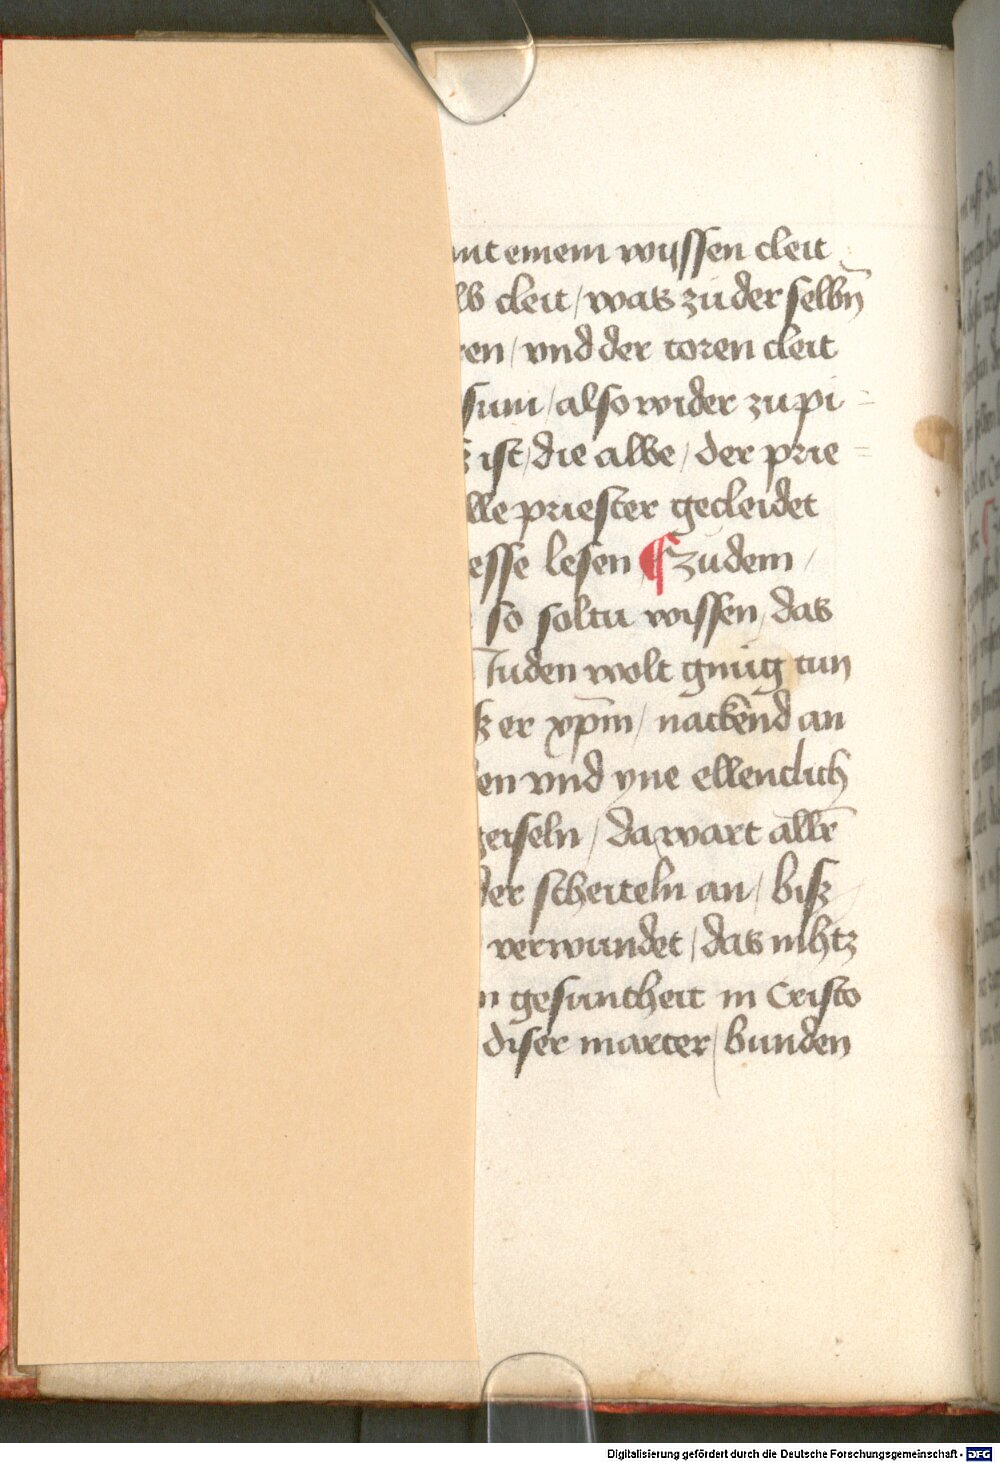 mit einem wijssen cleit
lb cleit / was zu der selbn̄
ren / vnd der toren cleit
sum / also wider zu pi =
ist / die albe / der prie =
lle priester gecleidet
esse lesen ¶ zu dem /
so soltu wissen / das
Juden wolt gnüg tun
er xp̄m / nackēnd an
en vnd yne ellentlich
geiseln / da wart allr̄
der scheiteln an / bisz
verwundet / das nihtz
n gesuntheit in Cristo
diser marter / bunden
Digitalisierung gefördert durch die Deutsche Forschungsgemeinschaft - DFG